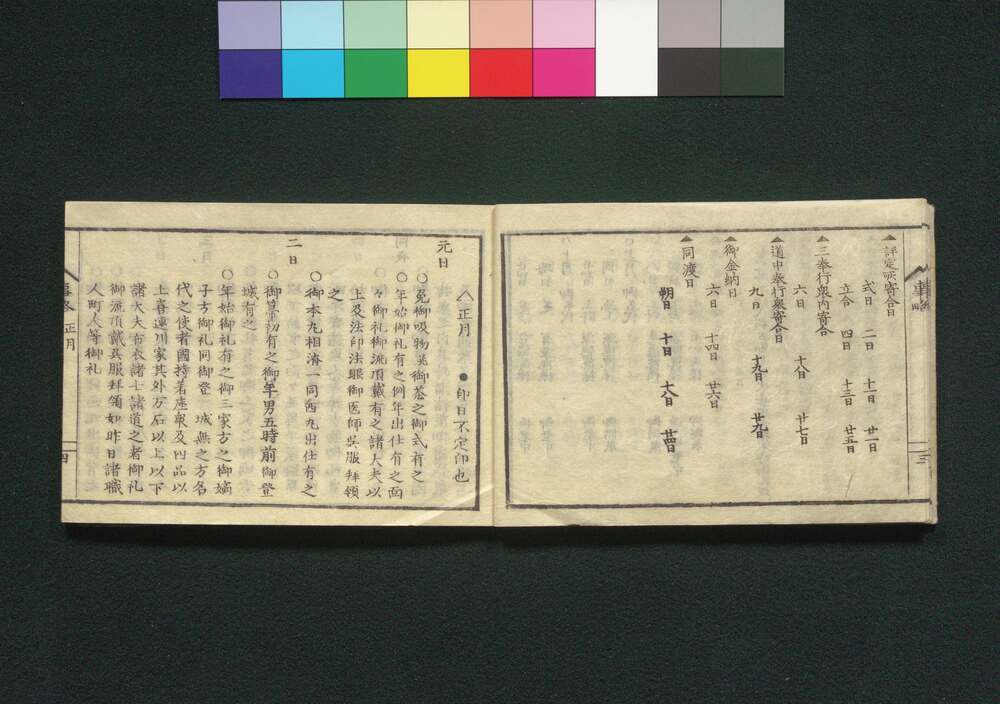 ▲評定所寄合日
式日 二日 十一日 廿一日
立合 四日 十三日 廿五日
▲三奉行衆内寄合
六日 十八日 廿七日
▲道中奉行衆寄合日
九日 十九日 廿九日
▲御金納日
六日 十四日 廿六日
▲同渡日
朔日 十日 十八日 廿四日
三
正月 ●印日不定印也
元日
○兎御吸物英御盃之御式有之
○年始御礼有之例年出仕有之面
々御礼御流頂戴有之諸大夫以
上及法印法眼御医師呉服拝領
之
○御本丸相済一同西丸出仕有之
二日
○御謡初有之御年男五時前御登
城有之
○年始御礼有之御三家方之御嫡
子方御礼同御登 城無之方名
代之使者國持着座衆及四品以
上喜連川家其外万石以上以下
諸大夫布衣諸士諸道之者御礼
御流頂戴呉服拝領如昨日諸職
人町人等御礼
正月
四